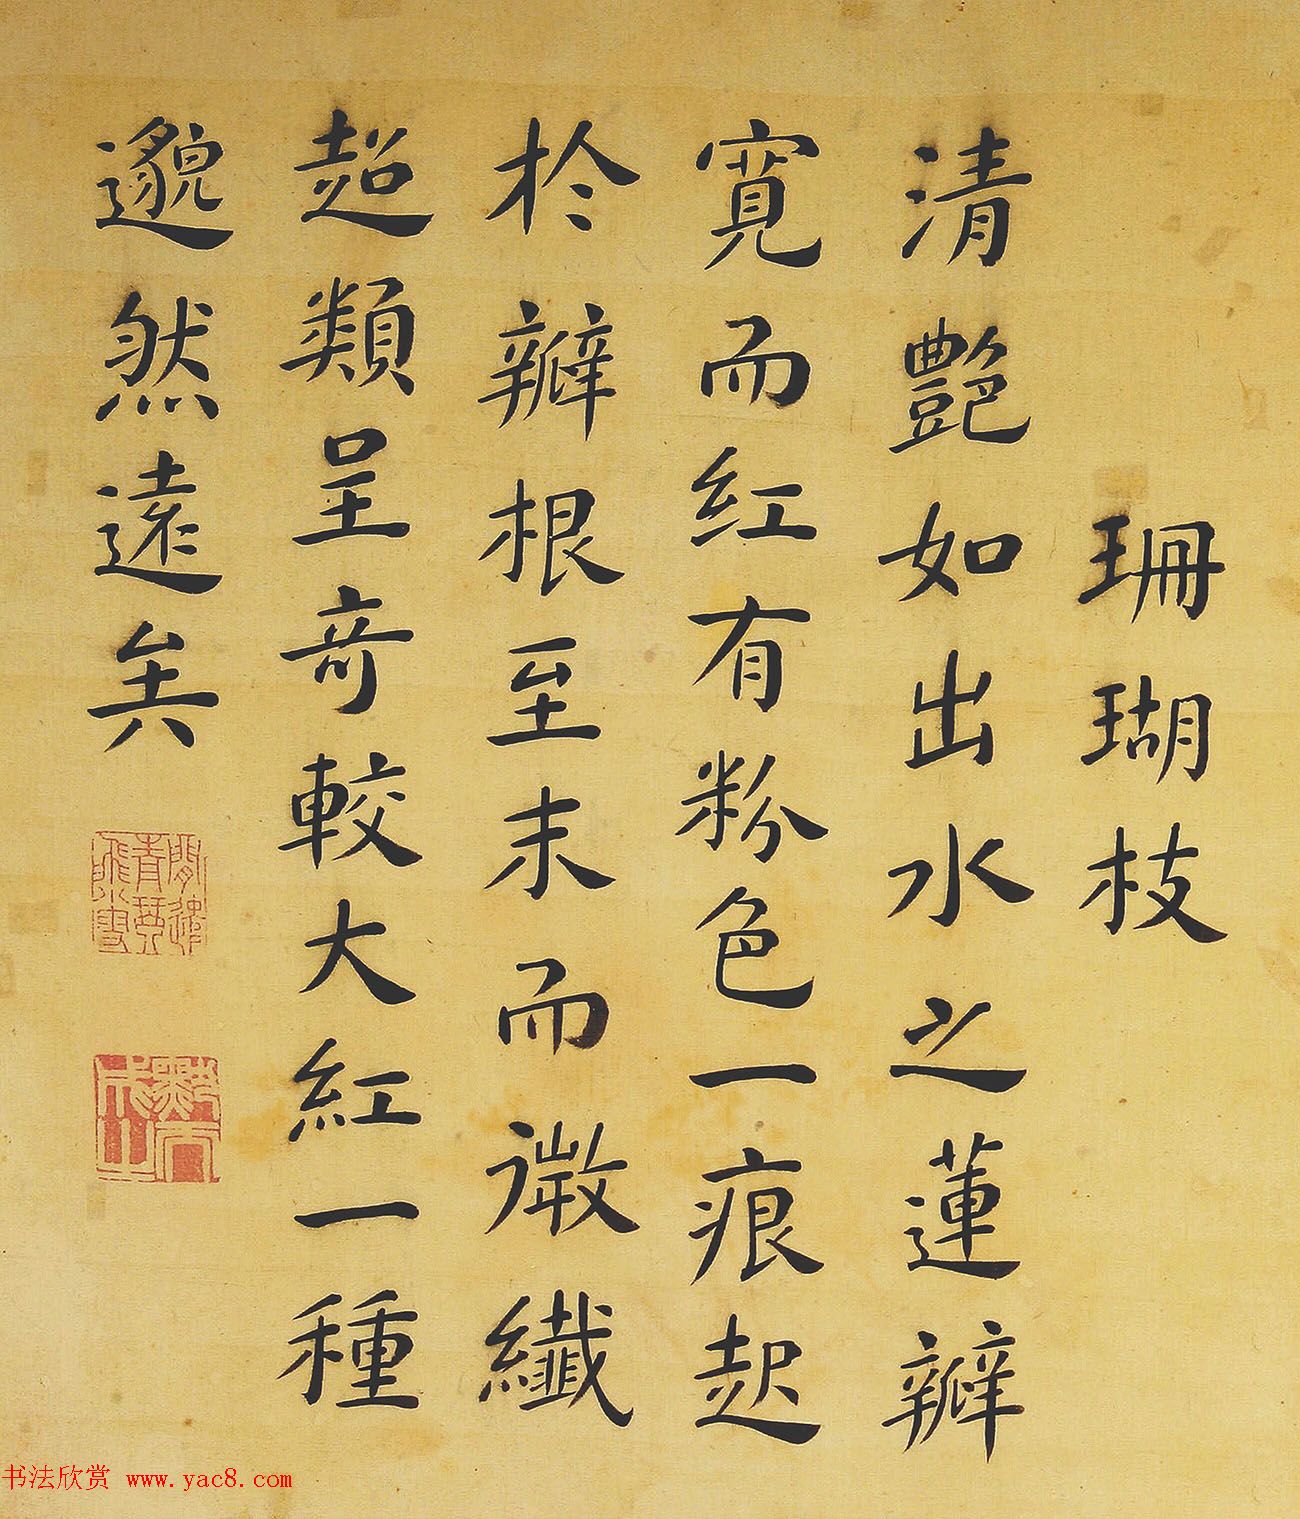 珊瑚枝
清艷如出水之蓮瓣
寬而紅有粉色一痕起
於瓣根至末而微纖
超類呈奇較大紅一種
邈然遠矣
书法欣赏 www.yac8.com